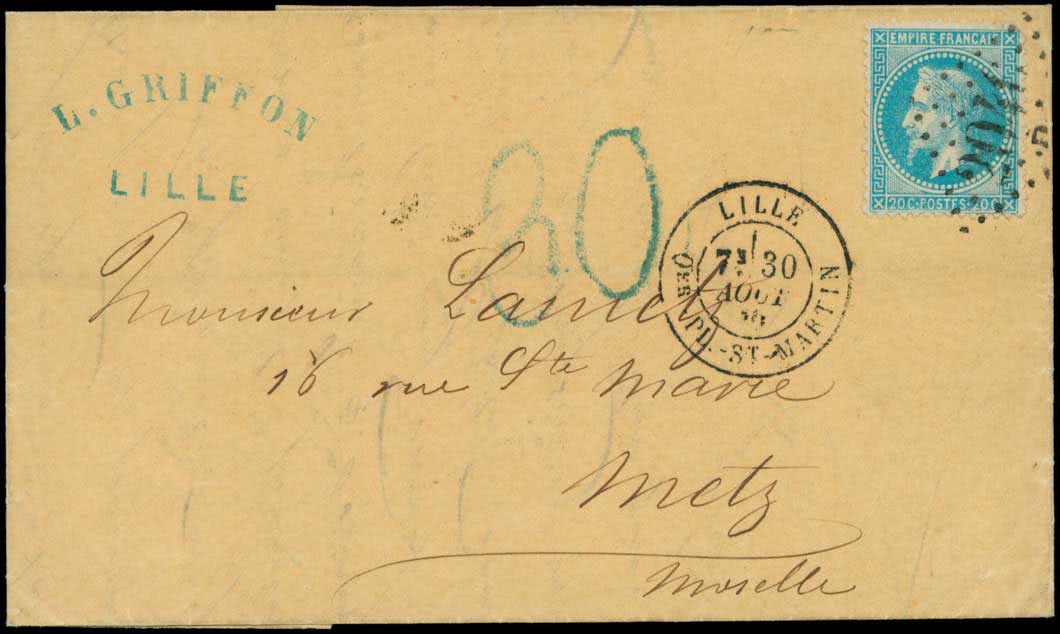 L. GRIFFON
LILLE
EMPIRE FRANCAIS
20 C. POSTES 20 C.
20
LILLE
7E 30
AOUT
PL.-ST-MARTIN
Monsieur Lametz
16 rue Ste Marie
Metz
Moselle